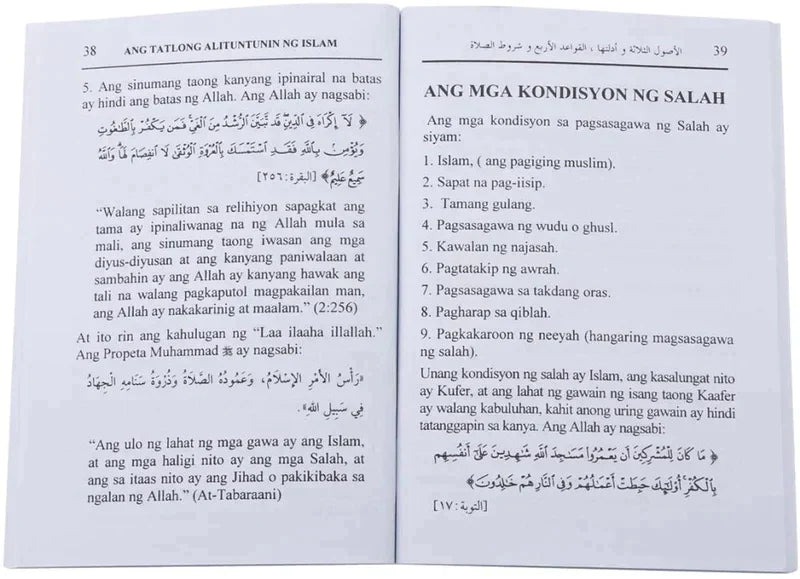 38 ANG TATLONG ALITUNTUNIN NG ISLAM
5. Ang sinumang taong kanyang ipinairal na batas
ay hindi ang batas ng Allah. Ang Allah ay nagsabi:
﴿ لَآ إِكۡرَاهَ فِي ٱلدِّينِۖ قَد تَّبَيَّنَ ٱلرُّشۡدُ مِنَ ٱلۡغَيِّۚ فَمَن يَكۡفُرۡ بِٱلطَّٰغُوتِ
وَيُؤۡمِنۢ بِٱللَّهِ فَقَدِ ٱسۡتَمۡسَكَ بِٱلۡعُرۡوَةِ ٱلۡوُثۡقَىٰ لَا ٱنفِصَامَ لَهَاۗ وَٱللَّهُ
سَمِيعٌ عَلِيمٌ﴾ [البقرة:٢٥٦]
“Walang sapilitan sa relihiyon sapagkat ang
tama ay ipinaliwanag na ng Allah mula sa
mali, ang sinumang taong iwasan ang mga
diyus-diyusan at ang kanyang paniwalaan at
sambahin ay ang Allah ay kanyang hawak ang
tali na walang pagkaputol magpakailan man,
ang Allah ay nakakarinig at maalam.” (2:256)
At ito rin ang kahulugan ng “Laa ilaaha illallah.”
Ang Propeta Muhammad ﷺ ay nagsabi:
«رَأْسُ الأَمْرِ الإِسْلَامُ، وَعَمُودُهُ الصَّلَاةُ وَذُرْوَةُ سَنَامِهِ الْجِهَادُ
فِي سَبِيلِ اللهِ».
“Ang ulo ng lahat ng mga gawa ay ang Islam,
at ang mga haligi nito ay ang mga Salah, at
ang sa itaas nito ay ang Jihad o pakikibaka sa
ngalan ng Allah.” (At-Tabaraani)
الأصول الثلاثة و أدلتها ، القواعد الأربع و شروط الصلاة 39
ANG MGA KONDISYON NG SALAH
Ang mga kondisyon sa pagsasagawa ng Salah ay
siyam:
1. Islam, ( ang pagiging muslim).
2. Sapat na pag-iisip.
3. Tamang gulang.
4. Pagsasagawa ng wudu o ghusl.
5. Kawalan ng najasah.
6. Pagtatakip ng awrah.
7. Pagsasagawa sa takdang oras.
8. Pagharap sa qiblah.
9. Pagkakaroon ng neeyah (hangaring magsasagawa
ng salah).
Unang kondisyon ng salah ay Islam, ang kasalungat nito
ay Kufer, at ang lahat ng gawain ng isang taong Kaafer
ay walang kabuluhan, kahit anong uring gawain ay hindi
tatanggapin sa kanya. Ang Allah ay nagsabi:
﴿ مَا كَانَ لِلۡمُشۡرِكِينَ أَن يَعۡمُرُواْ مَسَٰجِدَ ٱللَّهِ شَٰهِدِينَ عَلَىٰٓ أَنفُسِهِم
بِٱلۡكُفۡرِۚ أُوْلَٰٓئِكَ حَبِطَتۡ أَعۡمَٰلُهُمۡ وَفِي ٱلنَّارِ هُمۡ خَٰلِدُونَ﴾
[التوبة:١٧]